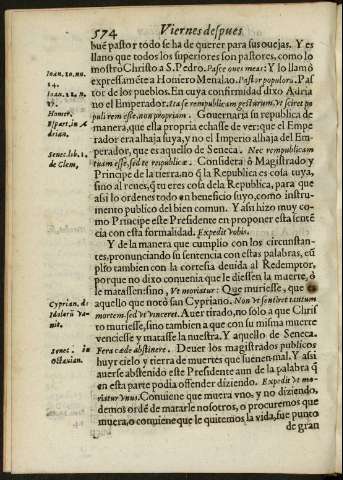 574 Viernes despues
buẽ pastor todo se ha de querer para sus ouejas. Y es
llano que todos los superiores son pastores, como lo
mostrò Christo a S. Pedro. Pasce oues meas: Y lo llamò
expressamẽte a Homero Menalao. Pastor populorũ. Pas
tor de los pueblos. En cuya confirmidad dixo Adria
no el Emperador. Ita se rempublicam gesturum, vt sciret po
puli rem esse, non propriam. Gouernaria su republica de
manera, que ella propria echasse de ver: que el Empe
rador era alhaja suya, y no el Imperio alhaja del Em-
perador, que es aquello de Seneca. Nec rempublicam
tuam esse, sed te reipublicæ. Considera ô Magistrado y
Principe de la tierra, no q̃ la Republica es cosa tuya,
sino al renes, q̃ tu eres cosa dela Republica, para que
assi lo ordenes todo en beneficio suyo, como instru-
mento publico del bien comun. Y assi hizo muy co-
mo Principe este Presidente en proponer esta sentẽ
cia con esta formalidad. Expedit vobis.
Y de la manera que cumplio con los circunstan-
tes, pronunciando su sentencia con estas palabras, cũ
plio tambien con la cortesia deuida al Redemptor,
porque no dixo conuenia que le diessen la muerte, ô
le matassen sino, Vt moriatur: Que muriesse, que es
aquello que notò san Cypriano. Non vt sentiret tantum
mortem, sed vt vinceret. Auer tirado, no solo a que Chris
to muriesse, sino tambien a que con su misma muerte
venciesse y matasse la nuestra. Y aquello de Seneca.
Fera cæde abstinere. Deuer los magistrados publicos
huyr cielo y tierra de muertes que suenen mal. Y assi
auerse abstenido este Presidente aun de la palabra q̃
en esta parte podia offender diziendo. Expedit vt mo-
riatur vnus. Conuiene que muera vno, y no diziendo,
demos ordẽ de matarle nosotros, o procuremos que
muera, o conuiene que le quitemos la vida, fue punto
de gran
Ioan. 10. nu.
14.
Ioan. 21. n.
17.
Homer.
Spart. in A
drian.
Senec. lib. 1.
de Clem,
Cyprian. de
Idolorũ Va-
nit.
Senec. in
Octauian.